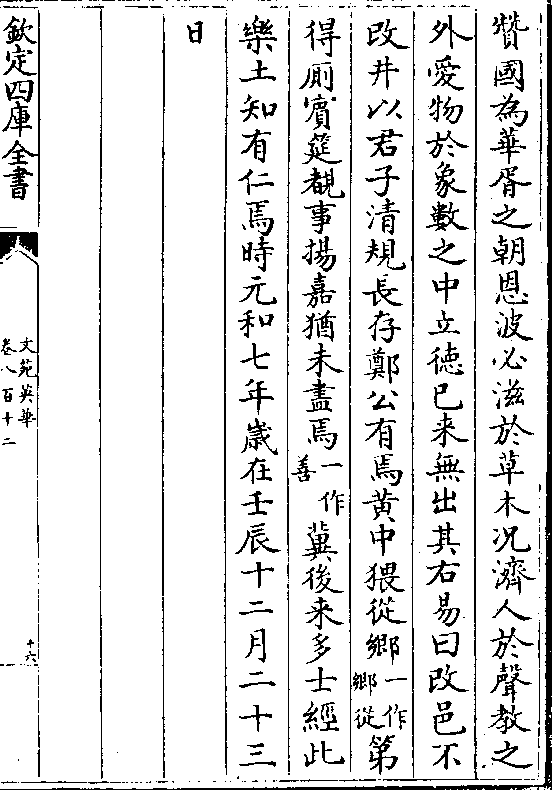 贊國為華胥之朝恩波必滋於草木况濟人於聲教之
外愛物於象數之中立徳已来無出其右易曰改邑不
改井以君子清規長存鄭公有焉黄中猥從鄉一作鄉從第
得厠賓筵覩事揚嘉猶未盡焉一作善冀後来多士經此
樂土知有仁焉時元和七年歳在壬辰十二月二十三
日
欽定四庫全書
文苑英華
卷八百十二
十六